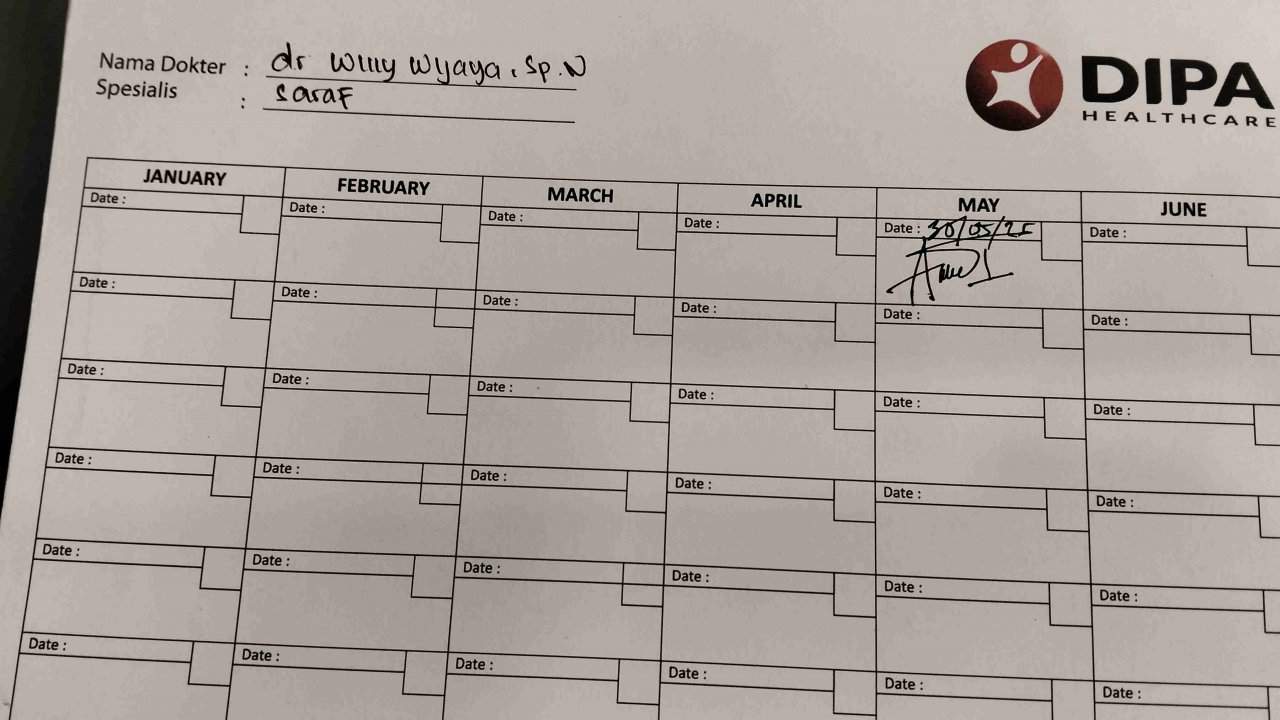 Nama Dokter : dr Willy Wijaya, Sp.N
Spesialis : Saraf
DIPA
HEALTHCARE
JANUARY FEBRUARY MARCH APRIL MAY JUNE
Date : Date : Date : Date : Date : 30/05/25 Date :
Date : Date : Date : Date : Date : Date :
Date : Date : Date : Date : Date : Date :
Date : Date : Date : Date : Date : Date :
Date : Date : Date : Date : Date : Date :
Date : Date : Date : Date : Date : Date :